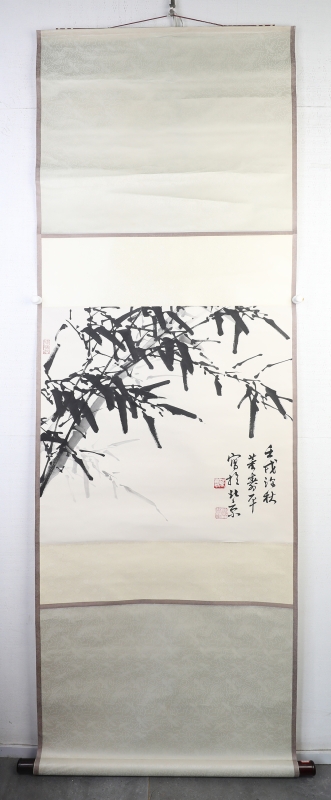 壬戌冷秋
董壽平
寫於北京